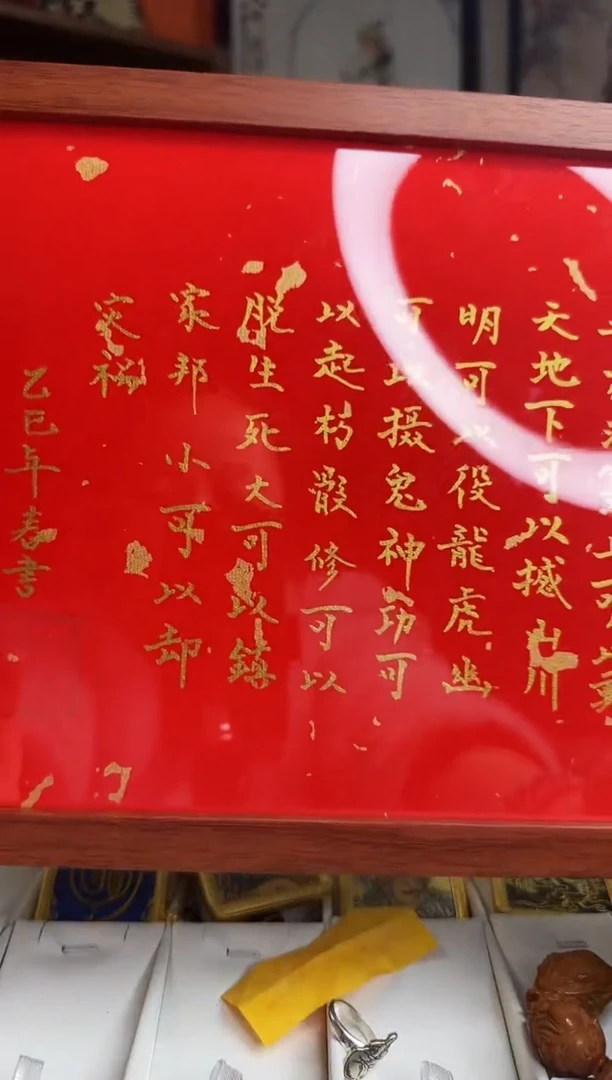 天地下可以撼山川
明可以役龍虎幽
可以摄鬼神功可
以起朽骸修可以
脱生死大可以鎮
家邦小可以却
灾祸
乙巳年春書